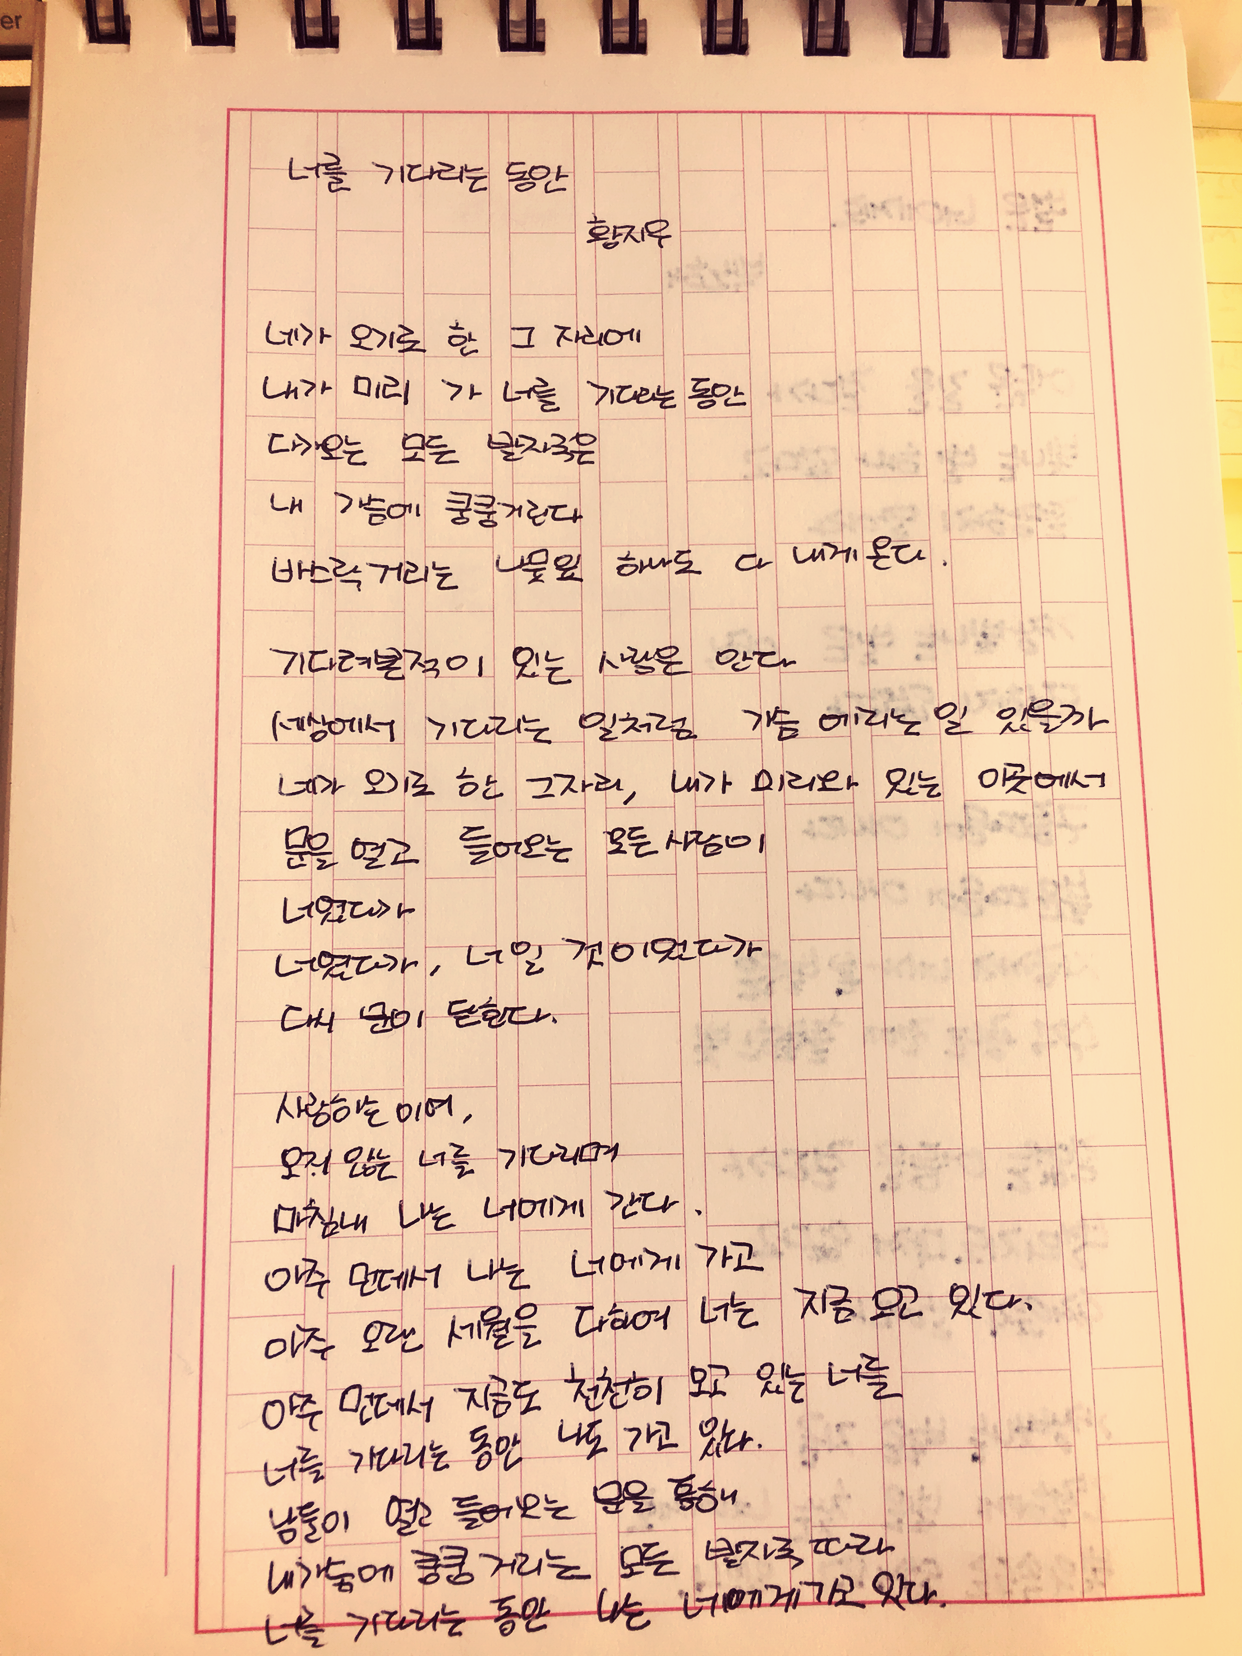 er
너를 기다리는 동안
황지우
네가 오기로 한 그 자리에
내가 미리 가 너를 기다리는 동안
다가오는 모든 발자국은
내 가슴에 쿵쿵거린다
바스락거리는 나뭇잎 하나도 다 내게 온다.
기다려본적이 있는 사람은 안다
세상에서 기다리는 일처럼 가슴 에리는 일 있을까
네가 오기로 한 그자리, 내가 미리와 있는 이곳에서
문을 열고 들어오는 모든 사람이
너였다가
너였다가, 너일 것이었다가
다시 문이 닫힌다.
사랑하는 이여,
오지 않는 너를 기다리며
마침내 나는 너에게 간다.
아주 먼데서 나는 너에게 가고
아주 오랜 세월을 다하여 너는 지금 오고 있다.
아주 먼데서 지금도 천천히 오고 있는 너를
너를 기다리는 동안 나도 가고 있다.
남들이 열고 들어오는 문을 통해
내가슴에 쿵쿵거리는 모든 발자국 따라
너를 기다리는 동안 나는 너에게 가고 있다.